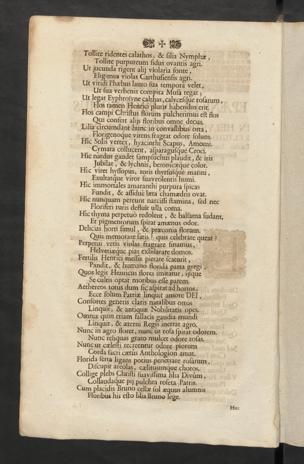 Tollite ridentes calathos, & lilia Nymphæ,
Tollite purpureum fidus ovantis agri.
Ut jucunda rigent alij violaria fonte,
Eligimus violas Carthusiensis agri.
Ut viridi Phœbus lauro sua tempora velet,
Ut sua verbenis compita Musa tegat;
Ut legat Euphrosyne calthas, calycesque rosarum,
Hos tamen Henrici pluris habendus erit.
Hos campi Christus florum pulcherrimus est flos
Qui confert alijs floribus omne decus.
Lilia circumdant hunc in convallibus orta,
Florigenoque virens fragrat odore solum.
Hic Solis vertex, hyacinthi Scapus, Amomi
Cymata collucent, asparagusque Croci.
Hic nardus gaudet sampsuchus plaudit, & iris
Jubilat, & lychnis, beronicæque color.
Hic viret hyssopus, roris thyrsusque marini,
Exultatque vitor suaveolentis humi.
Hic immortales amaranthi purpura spicas
Fundit, & assiduè læta chamædris ovat.
Hic nunquam pereunt narcissi stamina, sed nec
Floriferi ruris destuit ulla coma.
Hic thyma perpetuò redolent, & balsama sudant,
Et pigmentorum spirat amœnus odor.
Delicias horti simul, & præconia florum
Quis memorare satis? quis celebrare queat?
Perpetui vetis violas fragrare sinamus,
Helvetiæque pias exhilarare domos.
Fertilis Henrici messis pietate scatenti,
Pandit, & humano florida prata gregi
Quos legit Henricus flores imitatur, ipsique
Se cultis optat moribus esse parem.
Aethereos totus dum sic aspirat ad hortos
Ecce solum Patriæ linquit amore DEI,
Consortes generis claris natalibus ortos
Linquit, & antiquæ Nobilitatis opes.
Omnia quin etiam fallacis gaudia mundi
Linquit, & æterni Regis inerrat agro,
Nunc in agro floret, nunc ut rosa spirat odorem.
Nunc reliquas grato mulcet odore rosas.
Nunc ut cælesti recreentur odore piorum
Corda sacri cætûs Anthologion amat.
Florida serta ligans potius penetrare rosarum,
Discupit areolas, cælitumque choros.
Collige plebs Christi suavissima lilia Divûm,
Collaudaque pij pulchra roseta Patris.
Cum placidis Bruno cellæ sol æquus alumnis
Floribus his esto lilia Bruno lege.
Hoc